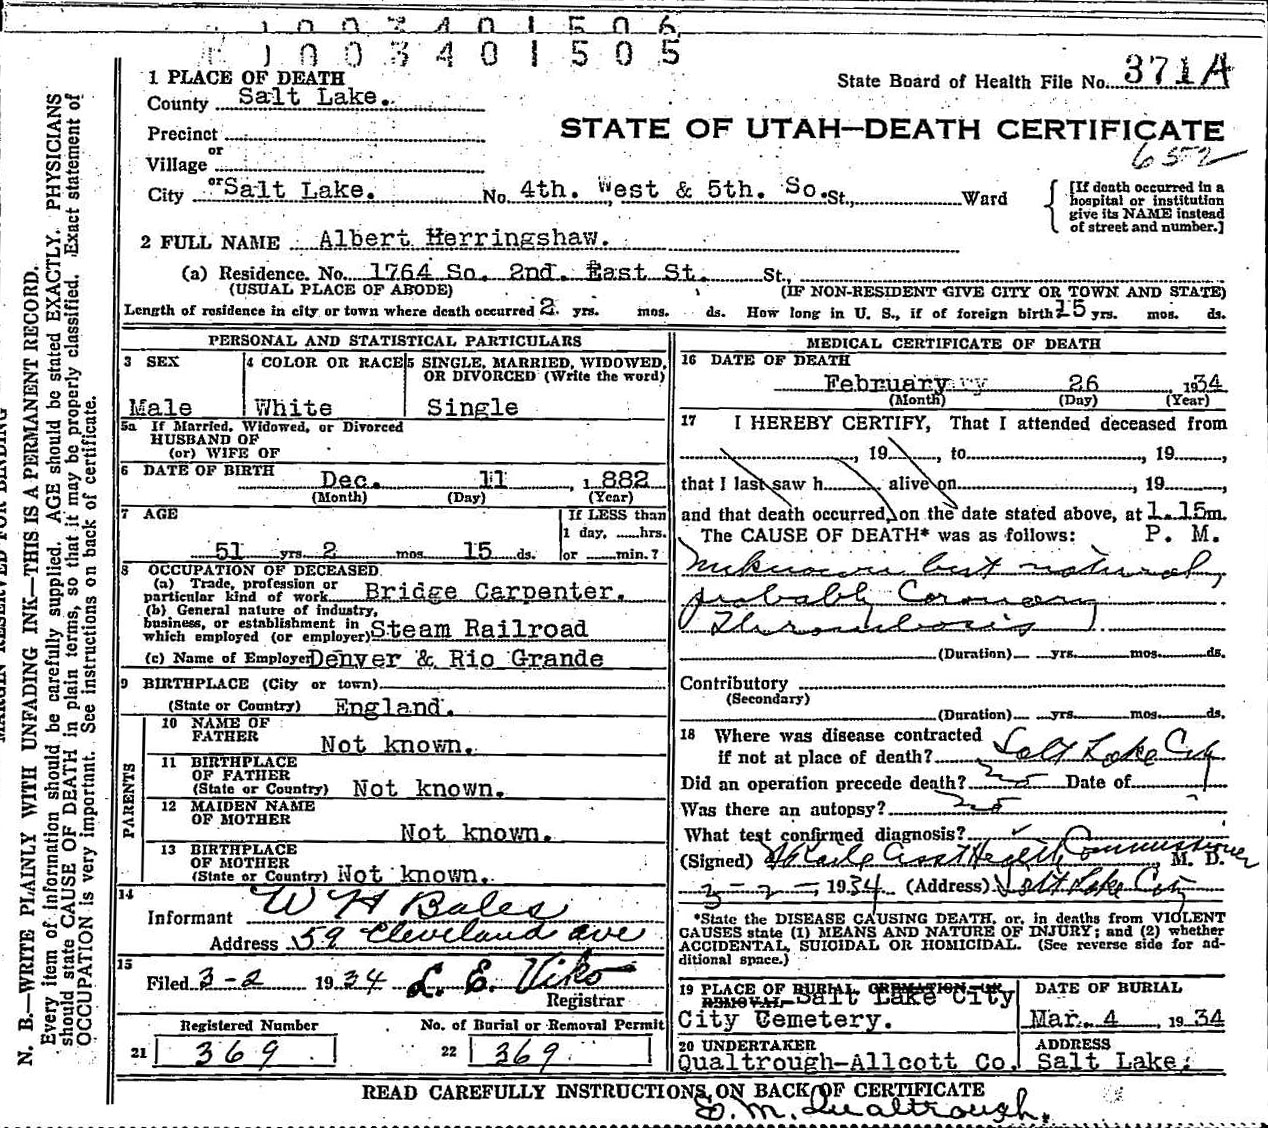 1003401506
1003401505
1 PLACE OF DEATH
State Board of Health File No. 371A
County Salt Lake.
STATE OF UTAH—DEATH CERTIFICATE
Precinct
652
or
Village
City or Salt Lake. No. 4th. West & 5th. So. St., Ward
[If death occurred in a hospital or institution give its NAME instead of street and number.]
2 FULL NAME Albert Herringshaw.
(a) Residence. No. 1764 So. 2nd. East St. St.,
(USUAL PLACE OF ABODE) (IF NON-RESIDENT GIVE CITY OR TOWN AND STATE)
Length of residence in city or town where death occurred 2 yrs. mos. ds. How long in U. S., if of foreign birth 15 yrs. mos. ds.
PERSONAL AND STATISTICAL PARTICULARS
3 SEX
Male
4 COLOR OR RACE
White
5 SINGLE, MARRIED, WIDOWED,
OR DIVORCED (Write the word)
Single
5a If Married, Widowed, or Divorced
HUSBAND OF
(or) WIFE OF
6 DATE OF BIRTH
Dec. 11, 1882
(Month) (Day) (Year)
7 AGE
51 yrs. 2 mos. 15 ds.
If LESS than
1 day, hrs.
or min.?
8 OCCUPATION OF DECEASED
(a) Trade, profession or
particular kind of work Bridge Carpenter.
(b) General nature of industry,
business, or establishment in
which employed (or employer) Steam Railroad
(c) Name of Employer Denver & Rio Grande
9 BIRTHPLACE (City or town)
(State or Country) England.
PARENTS
10 NAME OF
FATHER Not known.
11 BIRTHPLACE
OF FATHER
(State or Country) Not known.
12 MAIDEN NAME
OF MOTHER
Not known.
13 BIRTHPLACE
OF MOTHER
(State or Country) Not known.
14
Informant W H Bales
Address 59 Cleveland ave
15
Filed 3-2 1934 L. E. Viko
Registrar
Registered Number
21 369
No. of Burial or Removal Permit
22 369.
MEDICAL CERTIFICATE OF DEATH
16 DATE OF DEATH
February 26, 1934
(Month) (Day) (Year)
17 I HEREBY CERTIFY, That I attended deceased from
, 19 , to , 19 ,
that I last saw h alive on , 19 ,
and that death occurred, on the date stated above, at 1.15m.
The CAUSE OF DEATH* was as follows: P. M.
Unknown but natural,
probably Coronary
Thrombosis
(Duration) yrs. mos. ds.
Contributory
(Secondary)
(Duration) yrs. mos. ds.
18 Where was disease contracted
if not at place of death? Salt Lake City
Did an operation precede death? no Date of
Was there an autopsy? no
What test confirmed diagnosis?
(Signed) Asst Health Commissioner, M. D.
3-2-, 1934 (Address) Salt Lake City
*State the DISEASE CAUSING DEATH, or, in deaths from VIOLENT
CAUSES state (1) MEANS AND NATURE OF INJURY; and (2) whether
ACCIDENTAL, SUICIDAL OR HOMICIDAL. (See reverse side for ad-
ditional space.)
19 PLACE OF BURIAL, CREMATION OR
REMOVAL Salt Lake City
City Cemetery.
DATE OF BURIAL
Mar. 4, 1934
20 UNDERTAKER
Qualtrough-Allcott Co.
ADDRESS
Salt Lake.
READ CAREFULLY INSTRUCTIONS ON BACK OF CERTIFICATE
E. M. Qualtrough.
MARGIN RESERVED FOR BINDING
N. B.—WRITE PLAINLY WITH UNFADING INK—THIS IS A PERMANENT RECORD.
Every item of information should be carefully supplied. AGE should be stated EXACTLY. PHYSICIANS
should state CAUSE OF DEATH in plain terms, so that it may be properly classified. Exact statement of
OCCUPATION is very important. See instructions on back of certificate.